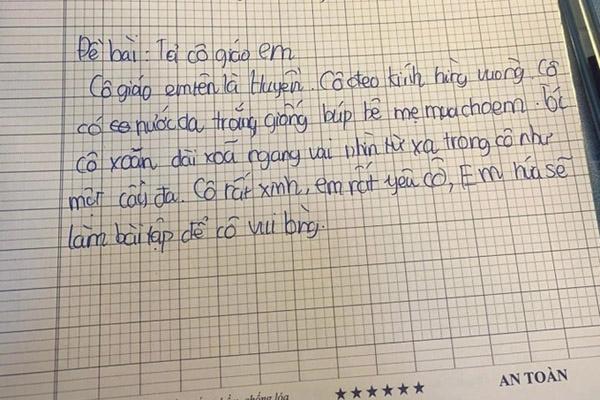 Đề bài: Tả cô giáo em
Cô giáo em tên là Huyền. Cô đeo kính hình vuông. Cô
có nước da trắng giống búp bê mẹ mua cho em. tóc
cô xoăn dài xoã ngang vai nhìn từ xa trong cô như
một cây đa. Cô rất xinh, em rất yêu cô, Em hứa sẽ
làm bài tập để cô vui lòng.
chống lóa
★★★★★★ AN TOÀN